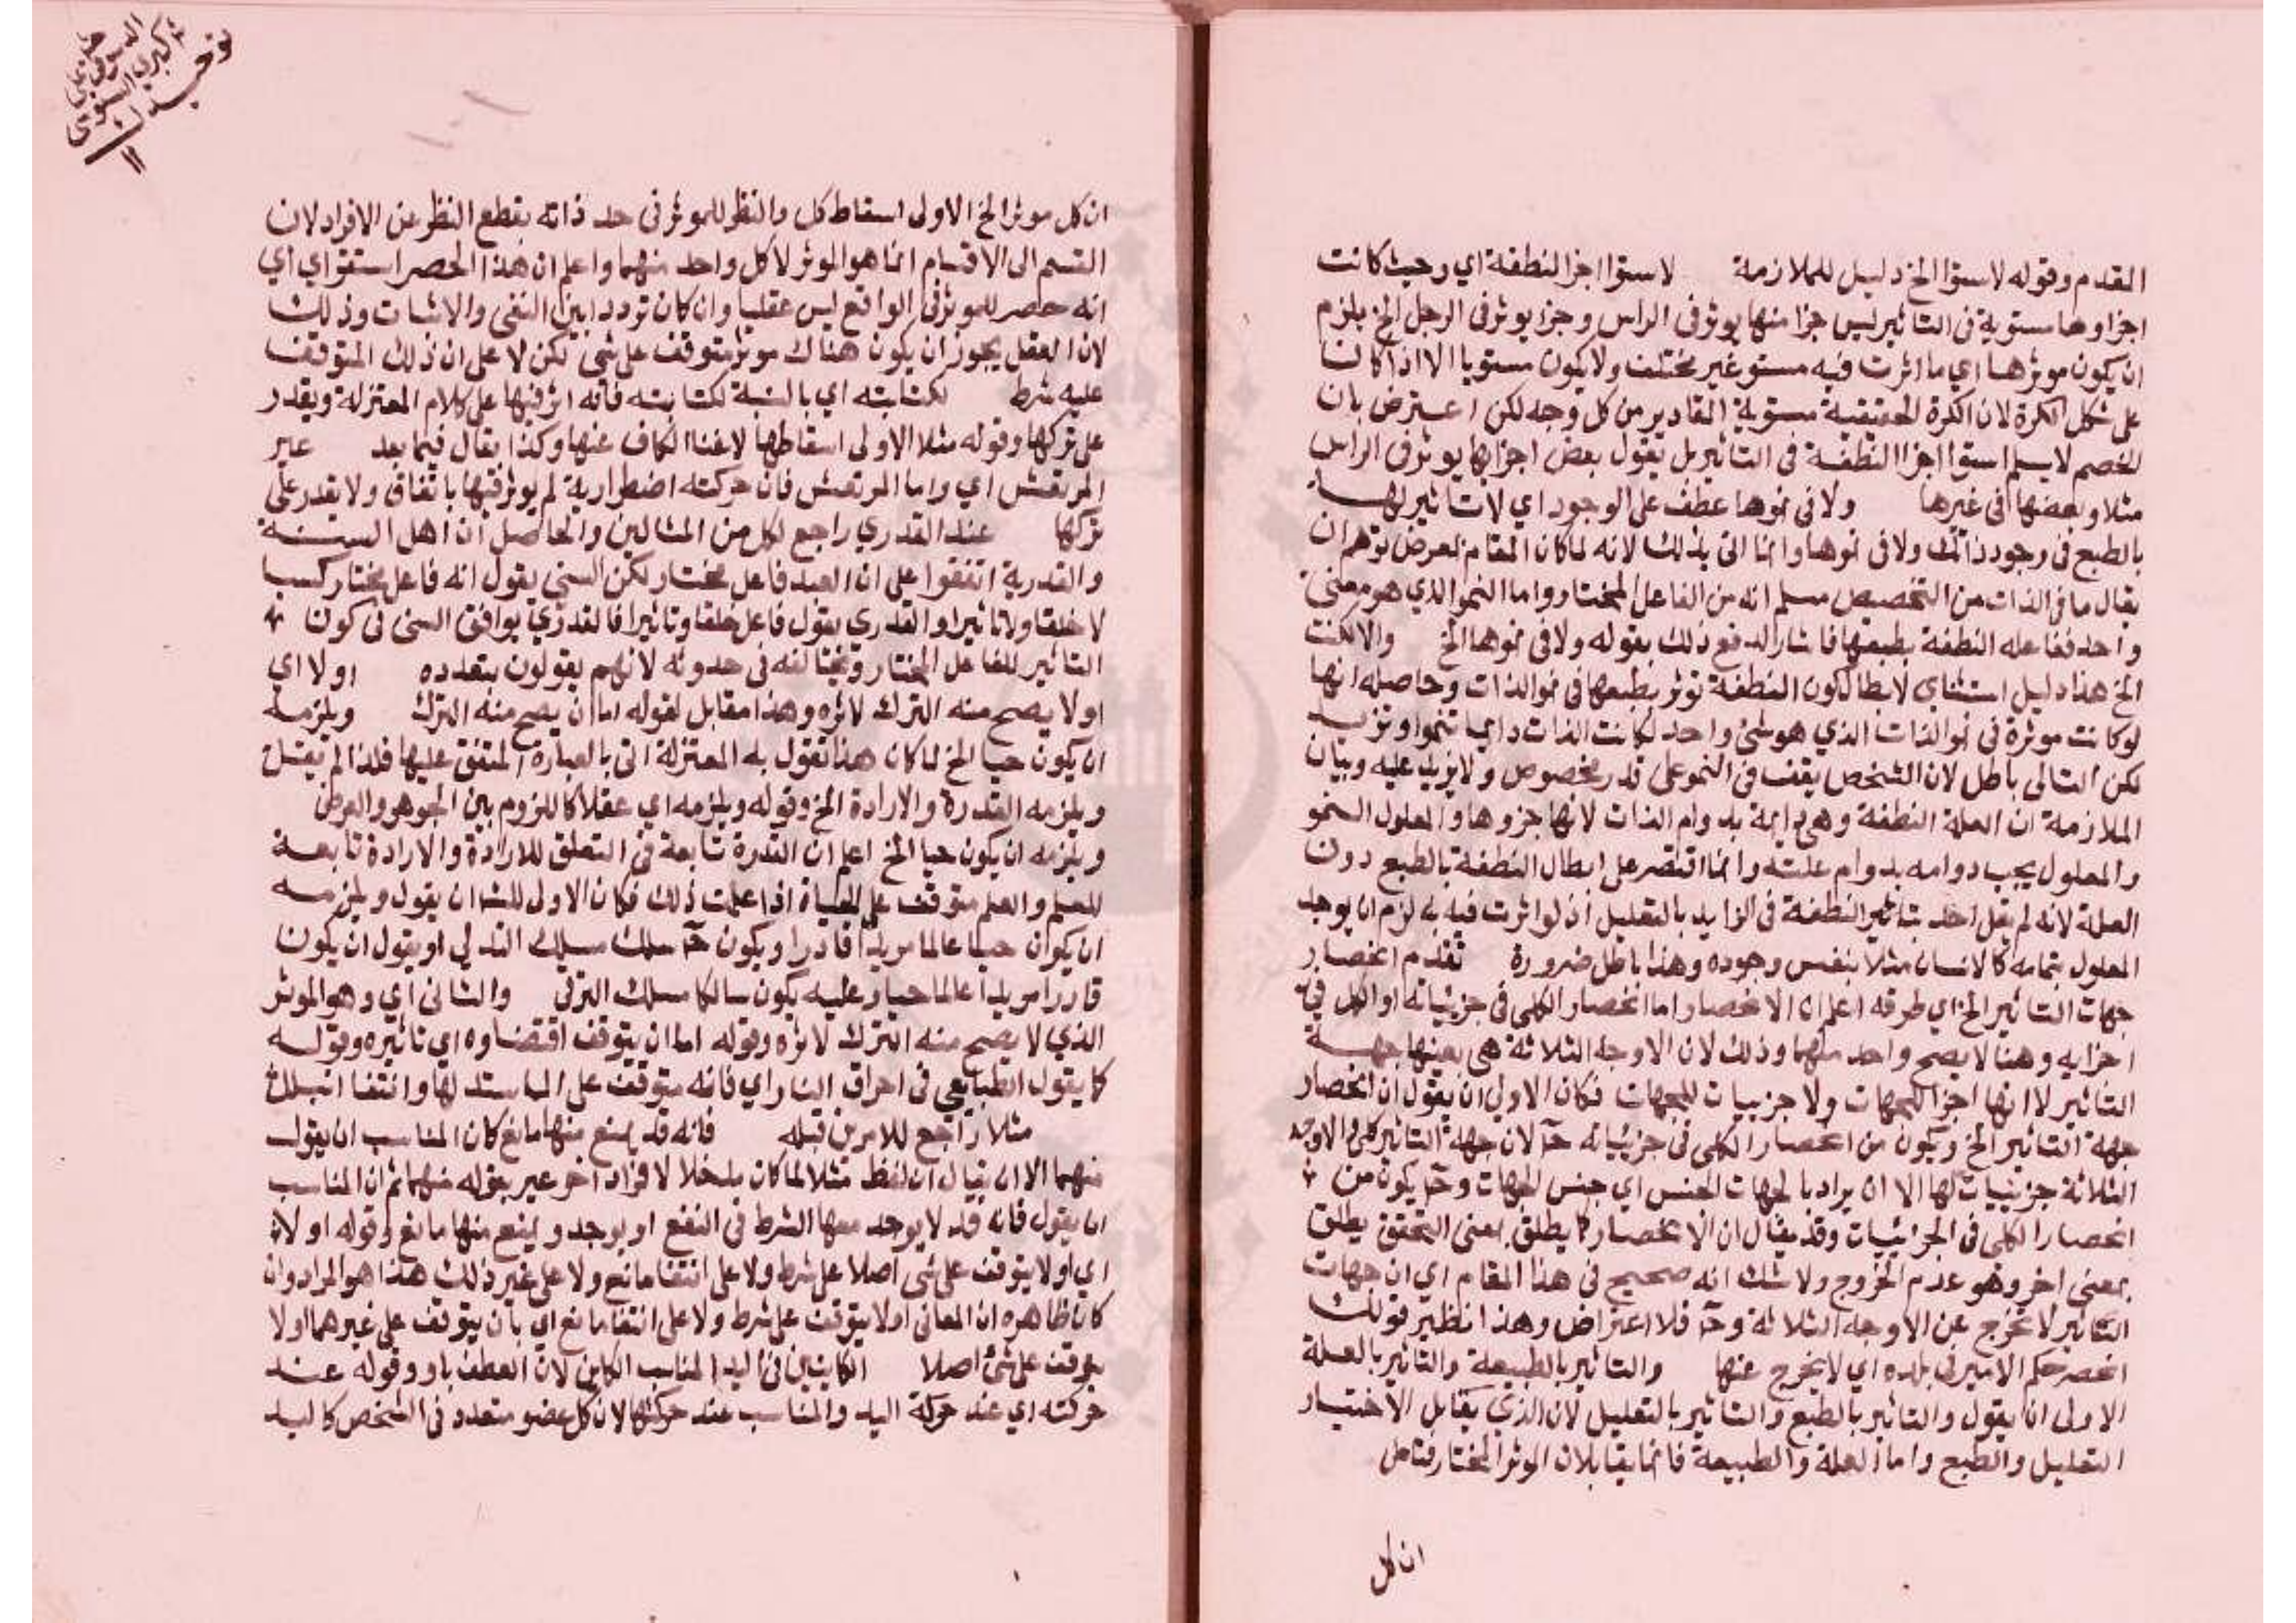 المقدم وقوله لاستوا الخ دليل للملازمة لاستوا اجزا النطفة اي وحيث كانت
اجزاوها مستوية في التاثير ليس جزا منها يوثر في الراس وجزا يوثر في الرجل الخ يلزم
ان يكون موثرها اي ما اثرت فيه مستو غير مختلف ولا يكون مستويا الا اذا كان
على شكل الكرة لان الكرة الحقيقية مستوية المقادير من كل وجه لكن اعترض بان
الخصم لا يسلم استوا اجزا النطفة في التاثير بل يقول بعض اجزايها يوثر في الراس
مثلا وبعضها في غيرها ولا في نموها عطف على الوجود اي لا تاثير لها
بالطبع في وجود ذاتك ولا في نموها وانما اتى بذلك لانه لما كان المقام لعرض توهم ان
يقال ما في الذات من التخصيص مسلم انه من الفاعل المختار واما النمو الذي هو معنى
واحد ففاعله النطفة بطبعها فاشار لدفع ذلك بقوله ولا في نموها الخ والا لكنت
الخ هذا دليل استثناي لابطال كون النطفة توثر بطبعها في نمو الذات وحاصله انها
لو كانت موثرة في نمو الذات الذي هو شئ واحد لكانت الذات دايما تنموا وتزيد
لكن التالي باطل لان الشخص يقف في النمو على قدر مخصوص ولا يزيد عليه وبيان
الملازمة ان العلة النطفة وهي دايمة بدوام الذات لانها جزوها والمعلول النمو
والمعلول يجب دوامه بدوام علته وانما اقتصر على ابطال النطفة بالطبع دون
العلة لانه لم يقل احد بتاثير النطفة في الزايد بالتعليل اذ لو اثرت فيه به لزم ان يوجد
المعلول بتمامه كالانسان مثلا بنفس وجوده وهذا باطل ضرورة تقدم انحصار
جهات التاثير الخ اي طرقه اعلم ان الانحصار اما انحصار الكلي في جزئياته او الكل في
اجزايه وهنا لا يصح واحد منهما وذلك لان الاوجه الثلاثة هي بعينها جهة
التاثير لا انها اجزا للجهات ولا جزييات للجهات فكان الاولى ان يقول ان انحصار
جهة التاثير الخ ويكون من انحصار الكلي في جزئياته ح لان جهة التاثير كلي والاوجه
الثلاثة جزييات لها الا ان يراد بالجهات الجنس اي جنس الجهات وح يكون من
انحصار الكلي في الجزئيات وقد يقال ان الانحصار كما يطلق بمعنى التحقق يطلق
بمعنى اخر وهو عدم الخروج ولا شك انه صحيح في هذا المقام اي ان جهات
التاثير لا تخرج عن الاوجه الثلاثة وح فلا اعتراض وهذا نظير قولك
انحصر حكم الامير في بلده اي لا يخرج عنها والتاثير بالطبيعة والتاثير بالعلة
الاولى ان يقول والتاثير بالطبع والتاثير بالتعليل لان الذي يقابل الاختيار
التعليل والطبع واما العلة والطبيعة فانما يقابلان الموثر المختار فتامل
ان كل
ان كل موثر الخ الاولى اسقاط كل والنظر للموثر في حد ذاته بقطع النظر عن الافراد لان
القسم الى الاقسام انما هو الموثر لا كل واحد منهما واعلم ان هذا الحصر استقراي اي
انه حصر للموثر في الواقع ليس عقليا وان كان ترددا بين النفي والاثبات وذلك
لان العقل يجوز ان يكون هناك موثر متوقف على شئ لكن لا على ان ذلك المتوقف
عليه شرط لكتابته اي بالنسبة لكتابته فانه اثر فيها على كلام المعتزلة ويقدر
على تركها وقوله مثلا الاولى اسقاطها لاغنا الكاف عنها وكذا يقال فيما بعد غير
المرتعش اي واما المرتعش فان حركته اضطرارية لم يوثر فيها باتفاق ولا يقدر على
تركها عند القدري راجع لكل من المثالين والحاصل ان اهل السنة
والقدرية اتفقوا على ان العبد فاعل مختار لكن السني يقول انه فاعل مختار كسبا
لا خلقا ولا تاثيرا والقدري يقول فاعل خلقا وتاثيرا فالقدري يوافق السني في كون
التاثير للفاعل المختار ويخالفه في حدوثه لانهم يقولون بتعدده اولا اي
او لا يصح منه الترك لاثره وهذا مقابل لقوله اما ان يصح منه الترك ويلزمه
ان يكون حيا الخ لما كان هذا تقول به المعتزلة اتى بالعبارة المتفق عليها فلذا لم يقل
ويلزمه القدرة والارادة الخ وقوله ويلزمه اي عقلا كاللزوم بين الجوهر والعرض
ويلزمه ان يكون حيا الخ اعلم ان القدرة تابعة في التعلق للارادة والارادة تابعة
للعلم والعلم متوقف على الحياة اذا علمت ذلك فكان الاولى للش ان يقول ويلزمه
ان يكون حيا عالما مريدا قادرا ويكون ح سلك مسلك التدلي او يقول ان يكون
قادرا مريدا عالما حيا وعليه يكون سالكا مسلك الترقي والثاني اي وهو الموثر
الذي لا يصح منه الترك لاثره وقوله اما ان يتوقف اقتضاوه اي تاثيره وقوله
كما يقول الطبايعي في احراق النار اي فانه متوقف على المماسة لها وانتفا البلل
مثلا راجع للامرين قبله فانه قد يمنع منها مانع كان المناسب ان يقول
منهما الا ان يقال ان لفظ مثلا لما كان مدخلا لافراد اخر عبر بقوله منها ثم ان المناسب
ان يقول فانه قد لا يوجد معها الشرط في النفع او يوجد ويمنع منها مانع وقوله او لا
اي او لا يتوقف على شي اصلا على شرط ولا على انتفا مانع ولا على غير ذلك هذا هو المراد وان
كان ظاهره ان المعاني او لا يتوقف على شرط ولا على انتفا مانع اي بان يتوقف على غيرهما او لا
يتوقف على شئ اصلا الكاينين في اليد المناسب الكاين لان العطف باو وقوله عند
حركته اي عند حركة اليد والمناسب عند حركتها لان كل عضو متعدد في الشخص كاليد